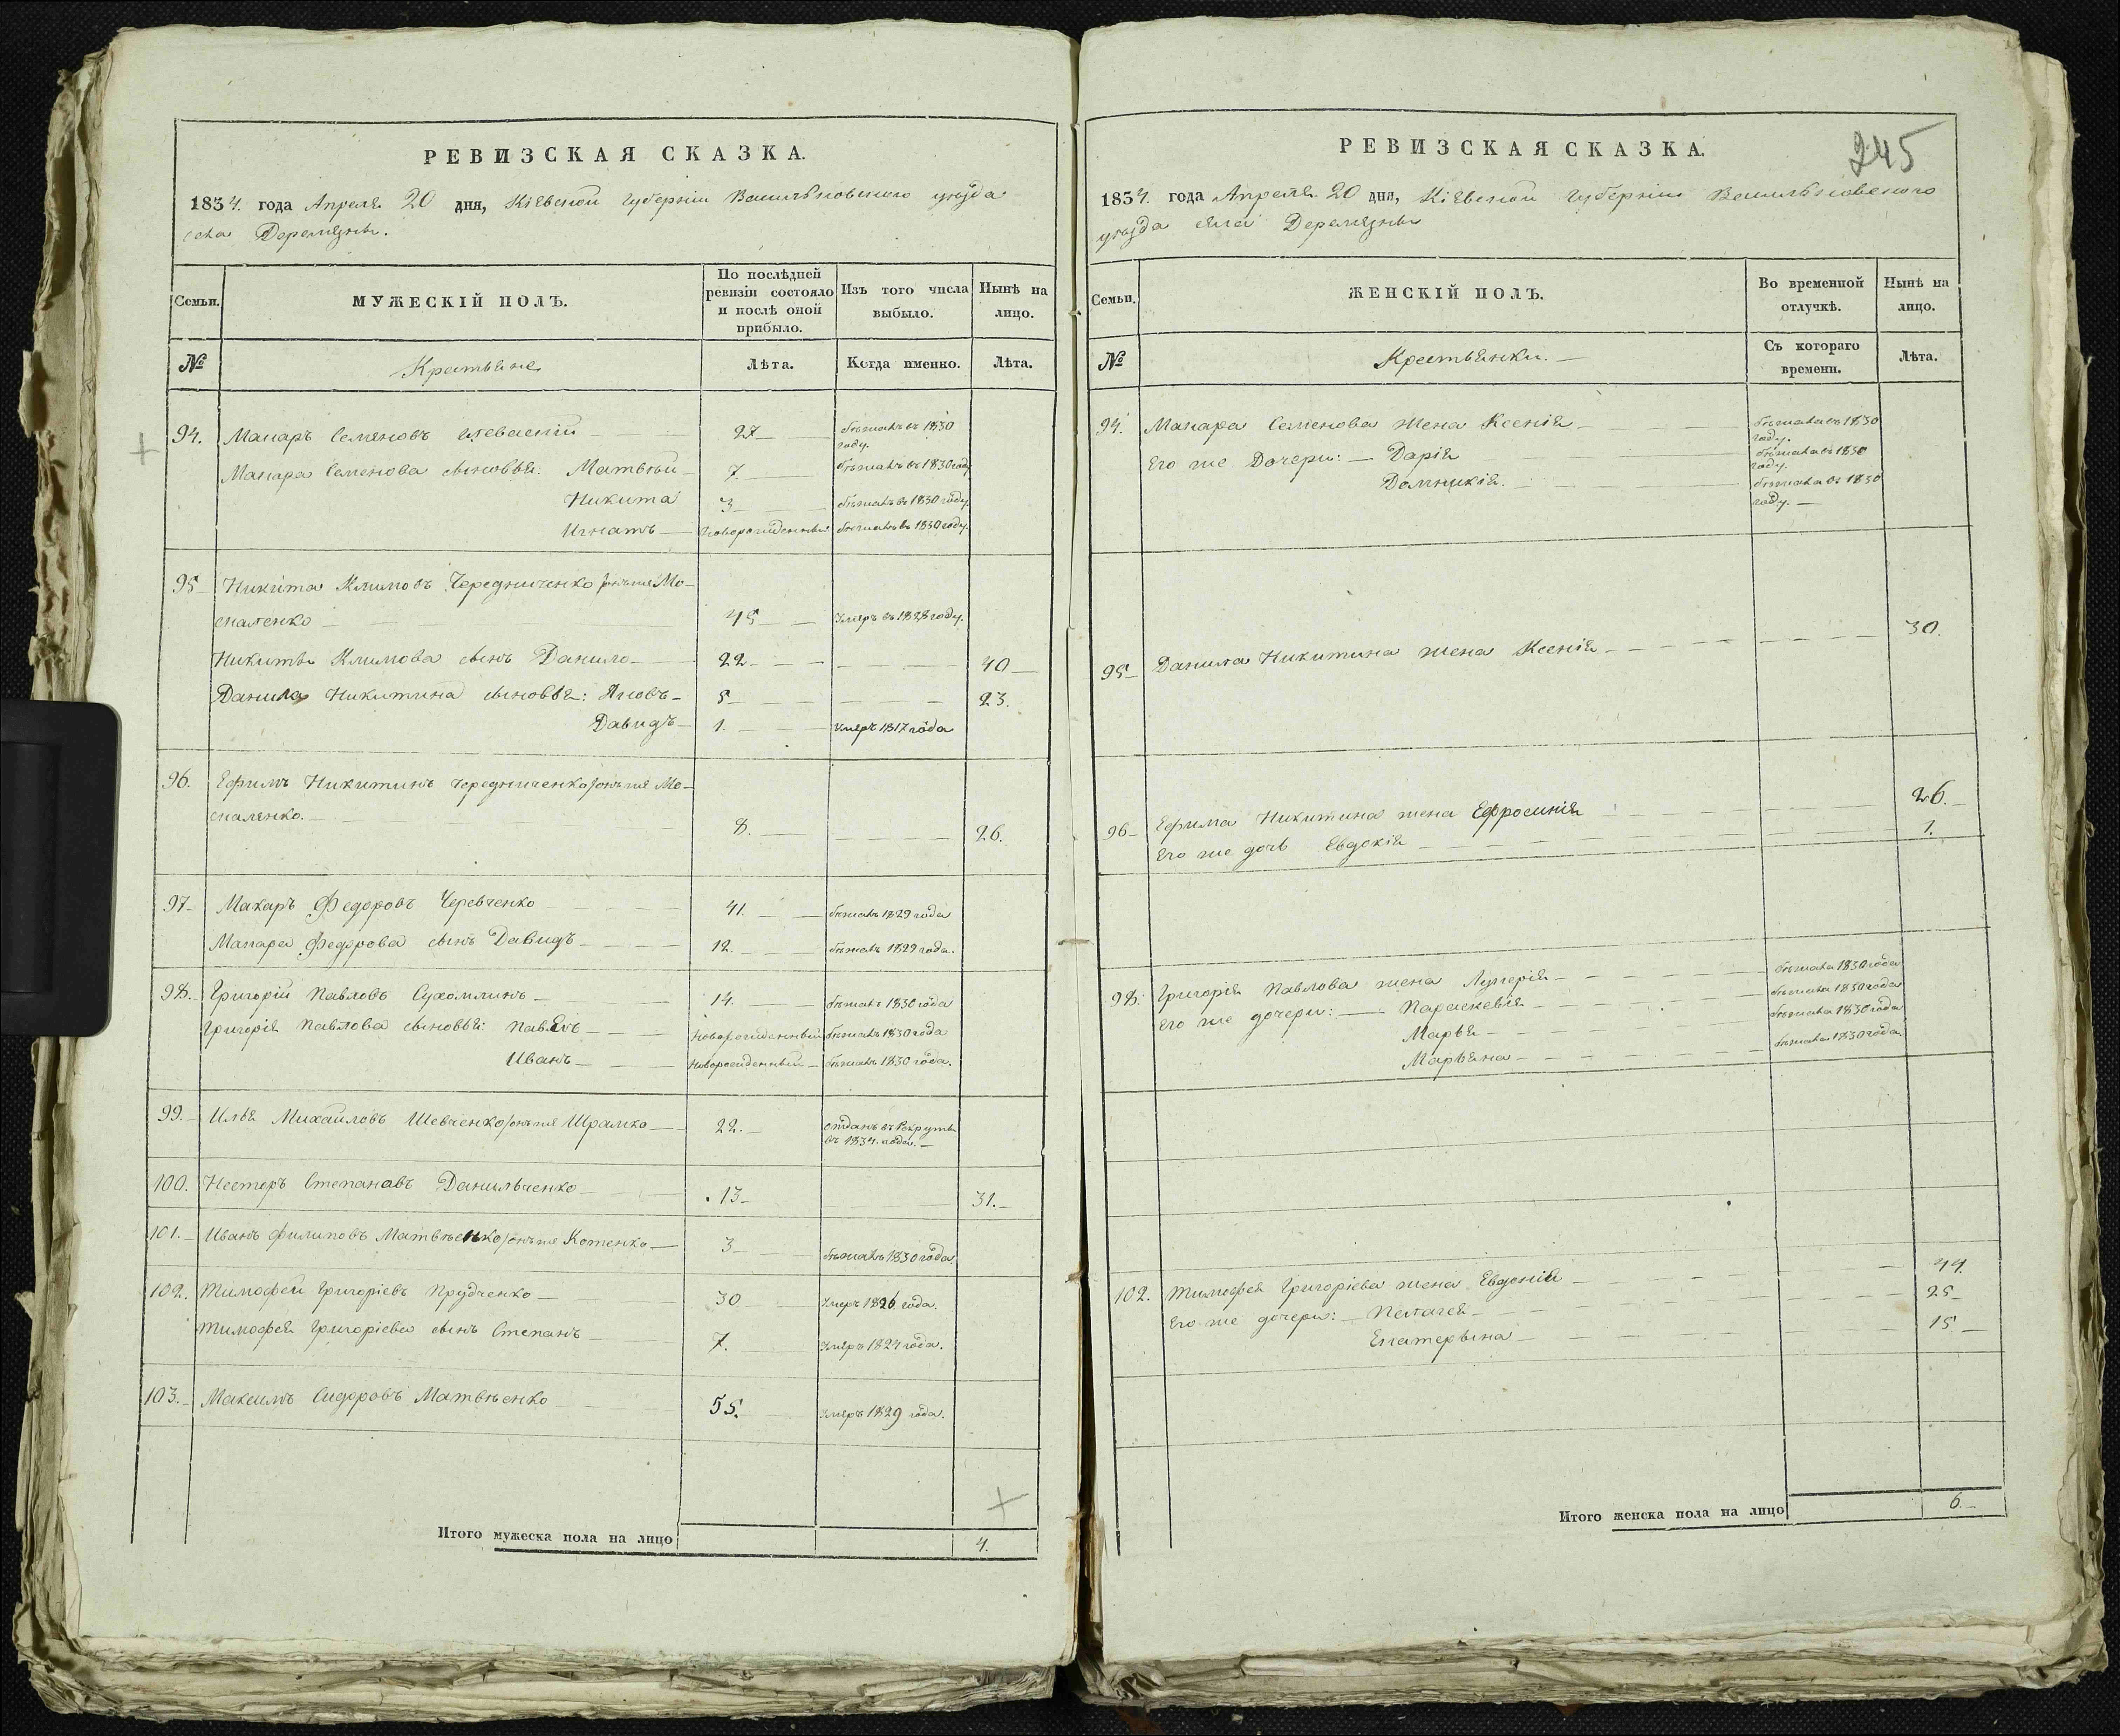 РЕВИЗСКАЯ СКАЗКА.
1834. года Апреля 20 дня, Кіевской Губерніи Васильковскаго уѣзда
села Деремезны.
Семьи.
МУЖЕСКІЙ ПОЛЪ.
По послѣдней ревизіи состояло и послѣ оной прибыло.
Изъ того числа выбыло.
Нынѣ на лицо.
№
Крестьяне
Лѣта.
Когда именно.
Лѣта.
94. Макаръ Семеновъ 27 бѣжалъ въ 1830 году.
Макара Семенова сыновья: Матвѣй 7. бѣжалъ въ 1830 году
Никита 3 бѣжалъ въ 1830 году.
Игнатъ новорожденный бѣжалъ въ 1830 году.
95 Никита Климовъ Чередниченко онъ же Мо-
скаленко 45 умеръ въ 1828 году.
Никиты Климова сынъ Данило 22 40
Данила Никитина сыновья: Яковъ 5 23.
Давидъ 1. умеръ 1817 года
96. Ефимъ Никитинъ Чередниченко онъ же Мо-
скаленко. 8. 26.
97 Макаръ Федоровъ Черевченко 41. бѣжалъ 1829 года
Макара Федорова сынъ Давидъ 12. бѣжалъ 1829 года.
98. Григорій Павловъ Сухомлинъ 14. бѣжалъ 1830 года
Григорія Павлова сыновья: Павелъ новорожденный бѣжалъ 1830 года
Иванъ новорожденный бѣжалъ 1830 года.
99. Илья Михайловъ Шевченко онъ же Шрамко 22. отданъ въ рекруты
въ 1834. года.
100. Несторъ Степановъ Данильченко 13 31.
101. Иванъ Филиповъ Матвѣенко онъ же Котенко 3 бѣжалъ 1830 года
102. Тимофей Григоріевъ Прудченко 30 умеръ 1826 года.
Тимофея Григоріева сынъ Степанъ 7. умеръ 1824 года.
103. Максимъ Сидоровъ Матвѣенко 55. умеръ 1829 года.
Итого мужеска пола на лицо 4.
245
РЕВИЗСКАЯ СКАЗКА.
1834. года Апреля 20 дня, Кіевской Губерніи Васильковскаго
уѣзда села Деремезны
Семьи.
ЖЕНСКІЙ ПОЛЪ.
Во временной отлучкѣ.
Нынѣ на лицо.
№
Крестьянки.
Съ котораго времени.
Лѣта.
94. Макара Семенова жена Ксенія бѣжала въ 1830 году.
Его же дочери: Дарія бѣжала въ 1830 году.
Домникія. бѣжала въ 1830 году.
95 Данила Никитина жена Ксенія 30.
96 Ефима Никитина жена Ефросинія 26.
Его же дочь Евдокія 1.
98. Григорія Павлова жена Лукерія бѣжала 1830 года
Его же дочери: Параскевія бѣжала 1830 года
Марья бѣжала 1830 года
Марьяна бѣжала 1830 года
102. Тимофея Григоріева жена Евдокія 44.
Его же дочери: Пелагея 25
Екатерына 15
Итого женска пола на лицо 6.